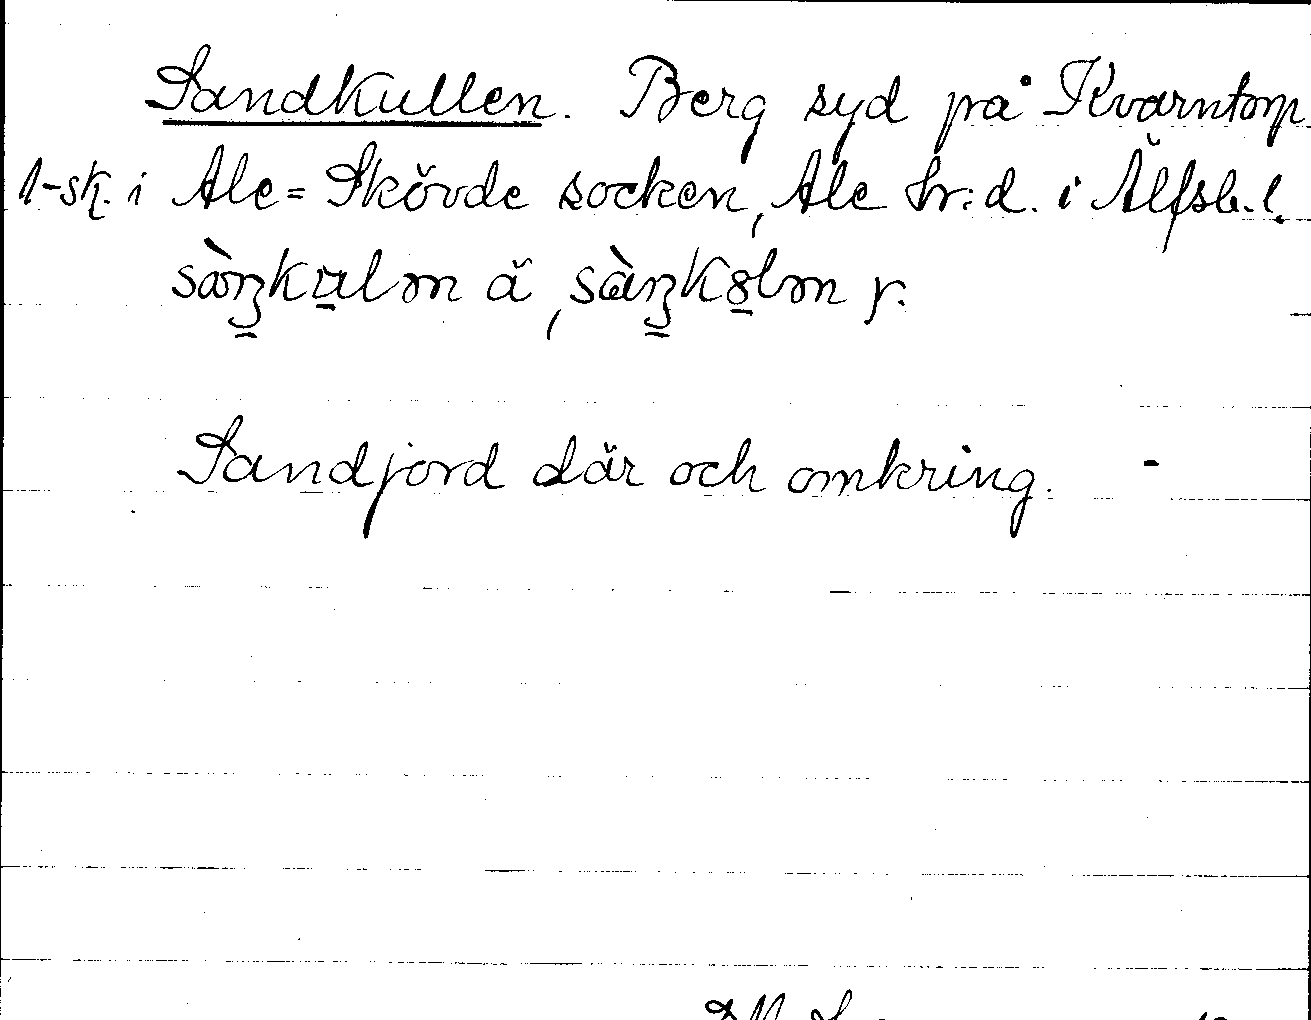 Sandkullen. Berg syd på Kvarntorp
1-sk. i Ale=Skövde socken, Ale hr:d. i Älfsb.l.
sàŋkulm ä, sàŋkɷlm y.
Sandjord där och omkring.